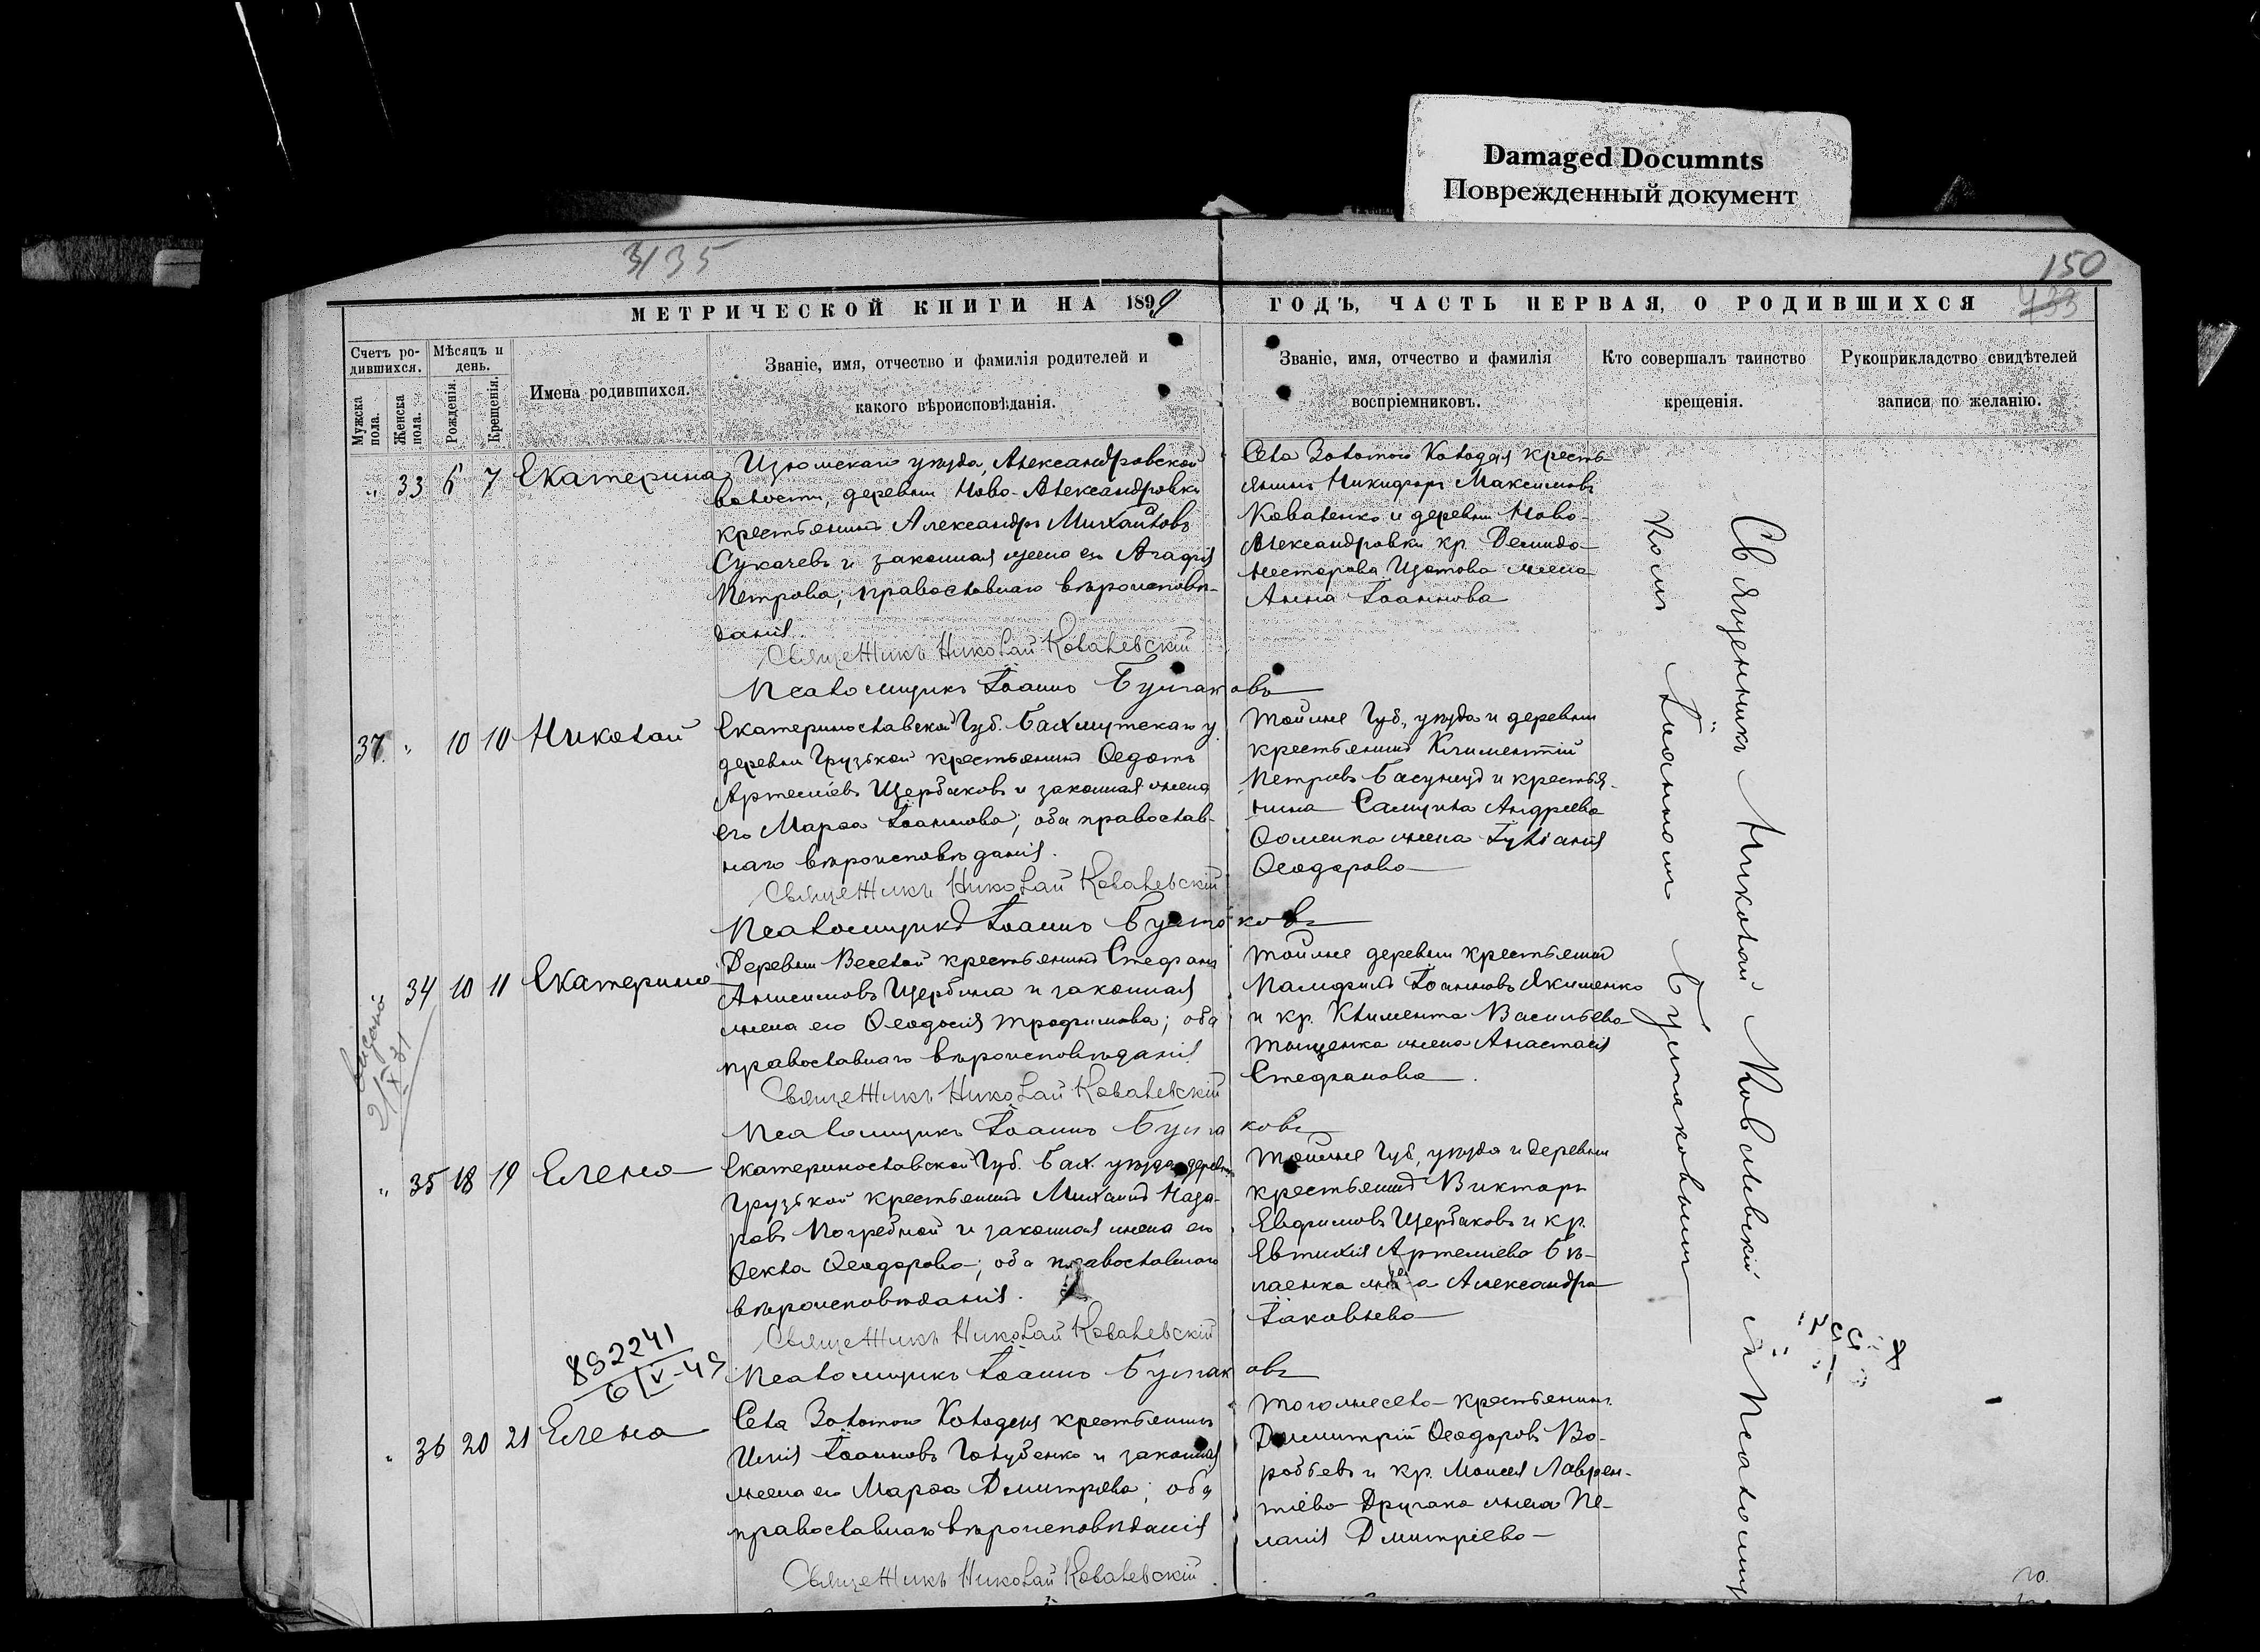 Damaged Documnts
Поврежденный документ
3135
150
433
МЕТРИЧЕСКОЙ КНИГИ НА 1899
ГОДЪ, ЧАСТЬ ПЕРВАЯ, О РОДИВШИХСЯ
Счетъ ро-
дившихся.
Мужска
пола.
Женска
пола.
Мѣсяцъ и
день.
Рожденія.
Крещенія.
Имена родившихся.
Званіе, имя, отчество и фамилія родителей и
какого вѣроисповѣданія.
Званіе, имя, отчество и фамилія
воспріемниковъ.
Кто совершалъ таинство
крещенія.
Рукоприкладство свидѣтелей
записи по желанію.
" 33 6 7 Екатерина
Изюмскаго уѣзда, Александровской
волости, деревни Ново-Александровки
крестьянинъ Александръ Михайловъ
Сукачевъ и законная жена его Агафія
Петрова; православнаго вѣроисповѣ-
данія.
Священникъ Николай Ковалевскій
Псаломщикъ Іоаннъ Булгаковъ
Села Золотого Колодезя кресть-
янинъ Никифоръ Максимовъ
Коваленко и деревни Ново-
Александровки кр. Демида
Нестерова жена
Анна Іоаннова
37. " 10 10 Николай
Екатеринославской Губ. Бахмутскаго у.
деревни Грузской крестьянинъ Ѳедотъ
Артеміевъ Щербаковъ и законная жена
его Марѳа Іоаннова; оба православ-
наго вѣроисповѣданія.
Священникъ Николай Ковалевскій
Псаломщикъ Іоаннъ Булгаковъ
Той же Губ., уѣзда и деревни
крестьянинъ Климентій
Петровъ и крестья-
нина Самуила Андреева
Ѳоменка жена Іуліанія
Ѳеодорова
" 34 10 11 Екатерина
Деревни Веселой крестьянинъ Стефанъ
Анисимовъ Щербина и законная
жена его Ѳеодосія Трофимова; оба
православнаго вѣроисповѣданія
Священникъ Николай Ковалевскій
Псаломщикъ Іоаннъ Булгаковъ
Той же деревни крестьянинъ
Памфилъ Іоанновъ Якименко
и кр. Климента Васильева
Тыщенка жена Анастасія
Стефанова.
выдано
21/X 31
" 35 18 19 Елена
Екатеринославской Губ. Бах. уѣзда деревни
Грузской крестьянинъ Михаилъ Наза-
ровъ Погребной и законная жена его
Ѳекла Ѳеодорова; оба православнаго
вѣроисповѣданія.
Священникъ Николай Ковалевскій
Псаломщикъ Іоаннъ Булгаковъ
Той же Губ., уѣзда и деревни
крестьянинъ Викторъ
Евфимовъ Щербаковъ и кр.
Евтихія Артеміева Бѣ-
лаенка жена Александра
Іаковлева
892241
6/V-49
" 36 20 21 Елена
Села Золотого Колодезя крестьянинъ
Илія Іоанновъ Голубенко и законная
жена его Марѳа Димитріева; оба
православнаго вѣроисповѣданія
Священникъ Николай Ковалевскій
Того же села крестьянинъ
Димитрій Ѳеодоровъ Во-
робьевъ и кр. Моисея Лаврен-
тіева жена Пе-
лагія Дмитріева
Священникъ Николай Ковалевскій съ Псаломщи-
комъ Іоанномъ Булгаковымъ